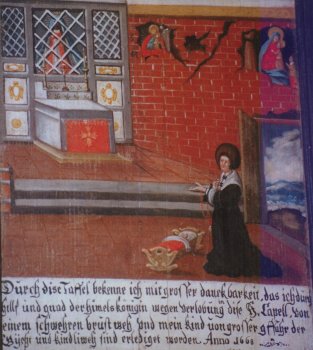 Durch dise Taffel bekenne ich mit grosser danckbarkeit, das ich durch
hilff und gnad der himels königin wegen verlobung in dise H. Capell, von
einem schwehren brust weh, und mein kind von grosser gfahr der
und kindliweh sind erlediget worden. Anno 1668